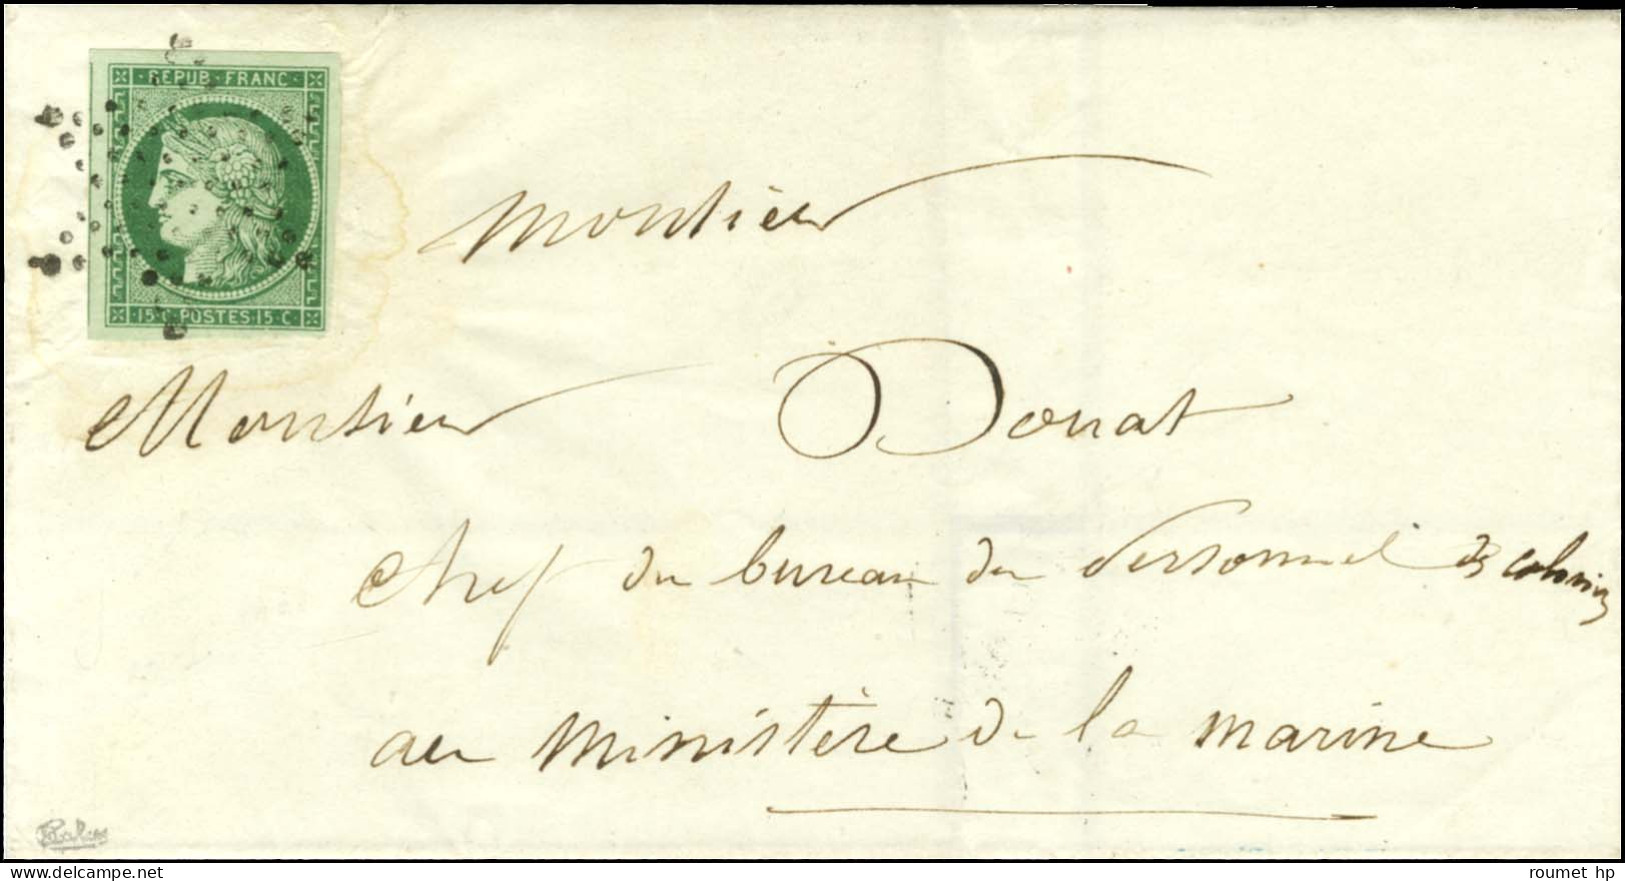 REPUB·FRANC
15·C·POSTES·15·C
Monsieur
Monsieur Donat
chef du bureau du Personnel des colonies
au Ministère de la marine
delcampe.net
roumet hp